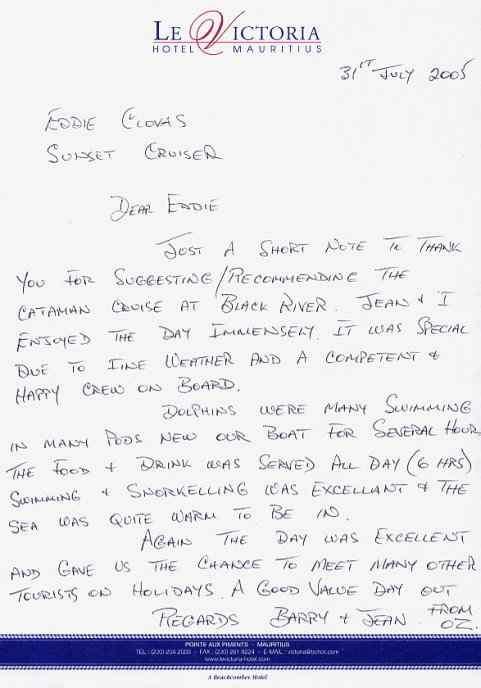 LE VICTORIA
HOTEL MAURITIUS
31ST JULY 2005
EDDIE CLOVAS
SUNSET CRUISER
DEAR EDDIE
JUST A SHORT NOTE TO THANK
YOU FOR SUGGESTING/RECOMMENDING THE
CATAMAN CRUISE AT BLACK RIVER. JEAN & I
ENJOYED THE DAY IMMENSELY. IT WAS SPECIAL
DUE TO FINE WEATHER AND A COMPETENT &
HAPPY CREW ON BOARD.
DOLPHINS WERE MANY SWIMMING
IN MANY PODS NEW OUR BOAT FOR SEVERAL HOUR
THE FOOD & DRINK WAS SERVED ALL DAY (6 HRS)
SWIMMING & SNORKELLING WAS EXCELLANT & THE
SEA WAS QUITE WARM TO BE IN.
AGAIN THE DAY WAS EXCELLENT
AND GAVE US THE CHANCE TO MEET MANY OTHER
TOURISTS ON HOLIDAYS. A GOOD VALUE DAY OUT
REGARDS BARRY & JEAN. FROM
OZ.
POINTE AUX PIMENTS - MAURITIUS
www.levictoria-hotel.com
A Beachcomber Hotel